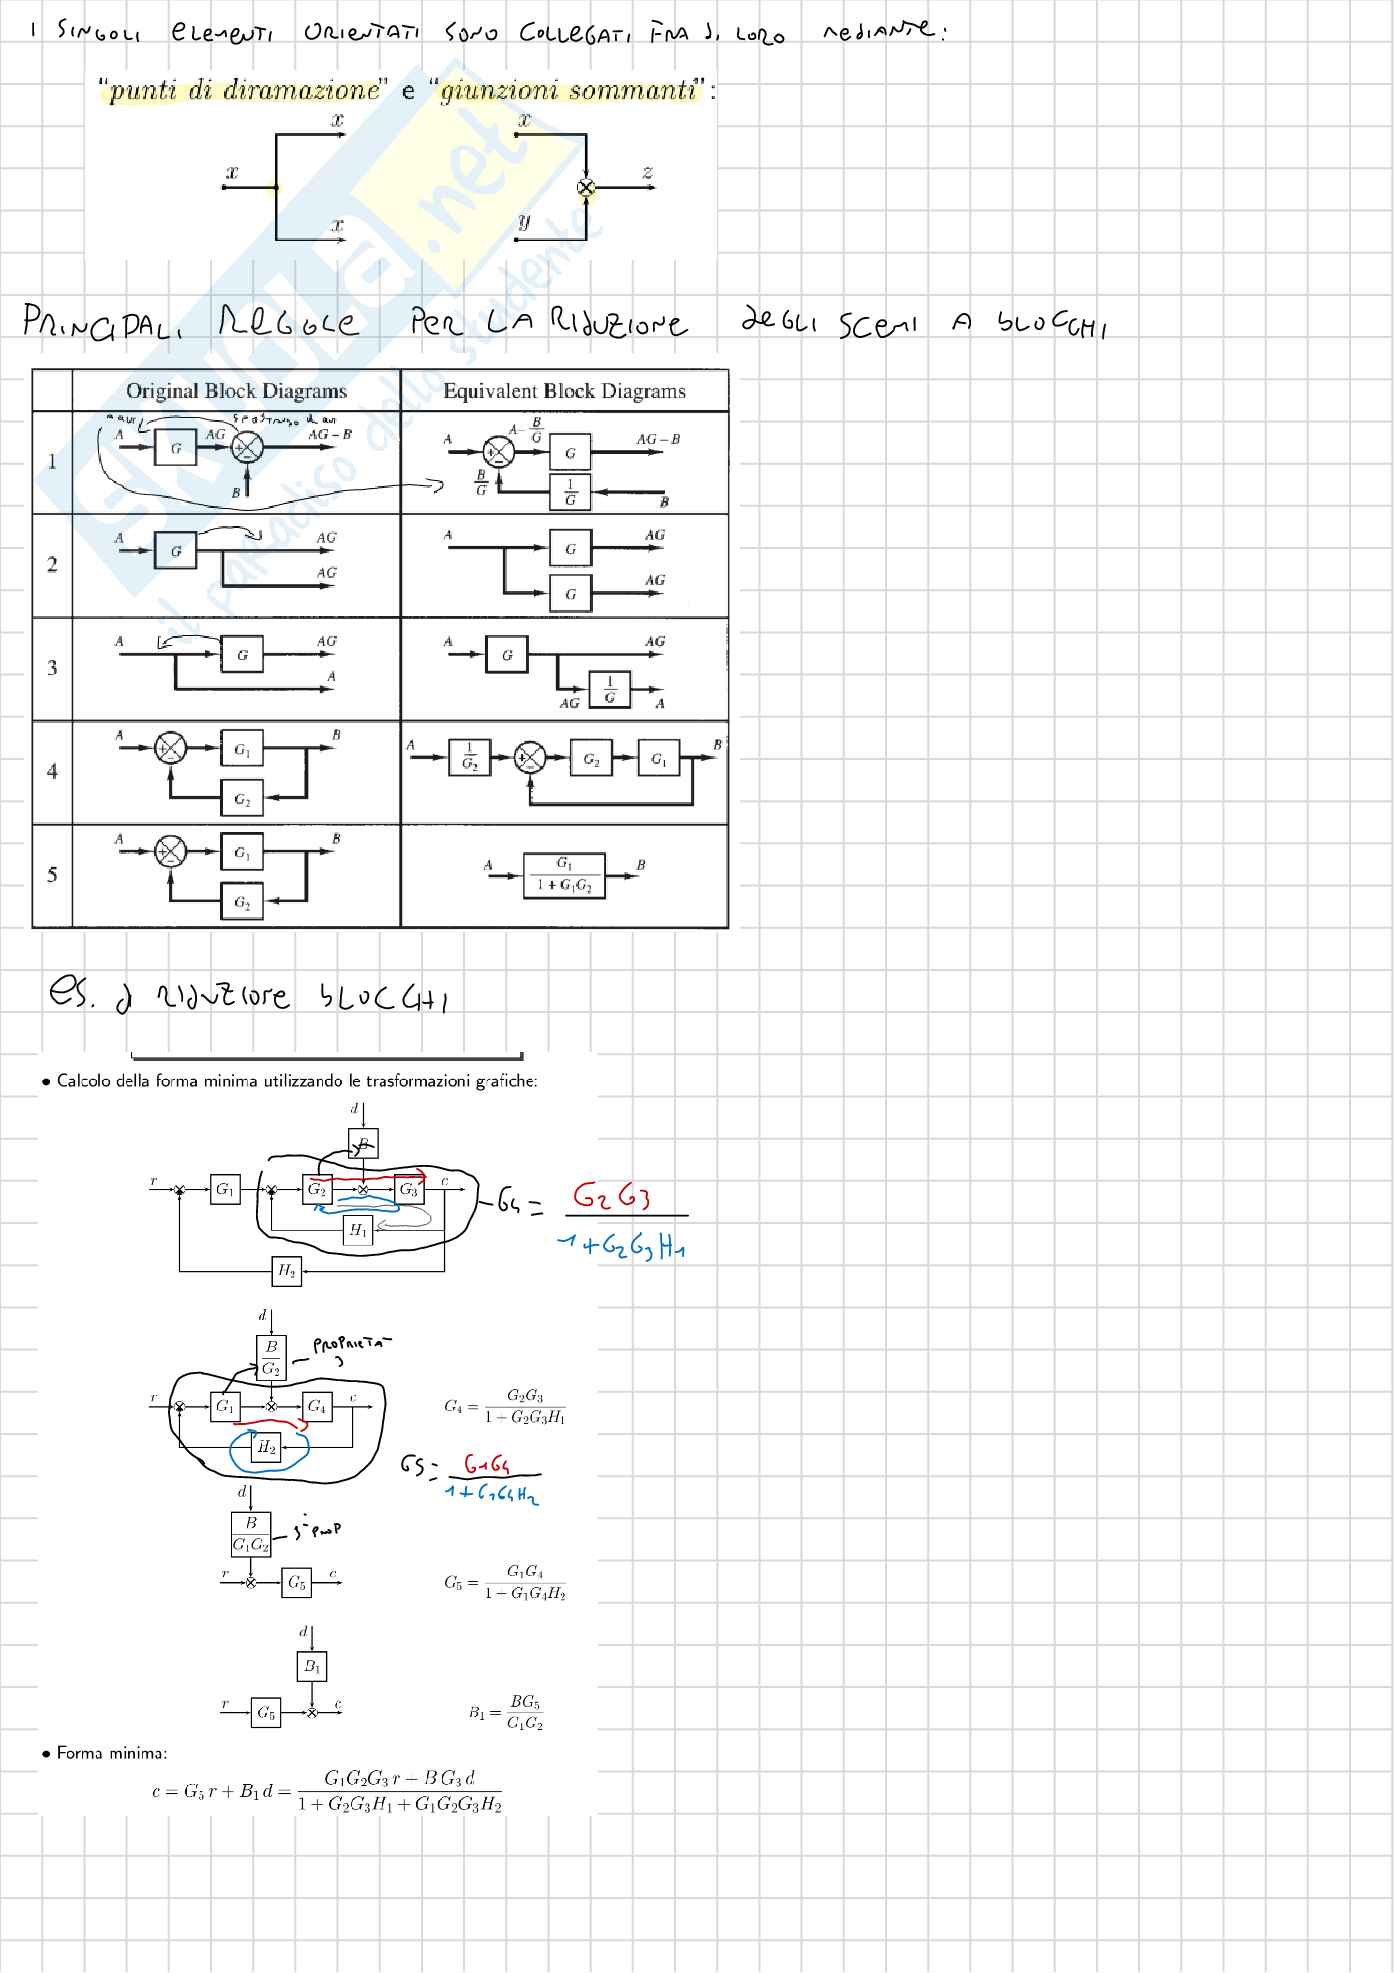 I SINGOLI ELEMENTI ORIENTATI SONO COLLEGATI FRA DI LORO MEDIANTE:
"punti di diramazione" e "giunzioni sommanti":
x x
x z
x y
PRINCIPALI REGOLE PER LA RIDUZIONE DEGLI SCEMI A BLOCCHI
Original Block Diagrams Equivalent Block Diagrams
1 A G AG + − AG − B B
A + − A − B/G G AG − B B/G 1/G B
2 A G AG AG
A G AG G AG
3 A G AG A
A G AG AG 1/G A
4 A + − G₁ B G₂
A 1/G₂ + − G₂ G₁ B
5 A + − G₁ B G₂
A G₁/(1 + G₁G₂) B
ES. DI RIDUZIONE BLOCCHI
• Calcolo della forma minima utilizzando le trasformazioni grafiche:
d
B
r G₁ G₂ G₃ c
H₁
H₂
G4 = G2G3/(1+G2G3H1)
d
B/G₂ PROPRIETÀ 3
r G₁ G₄ c
H₂
G₄ = G₂G₃/(1 − G₂G₃H₁)
G5 = G1G4/(1+G1G4H2)
d
B/(G₁G₂) 3ª PROP
r G₅ c
G₅ = G₁G₄/(1 − G₁G₄H₂)
d
B₁
r G₅ c
B₁ = BG₅/(G₁G₂)
• Forma minima:
c = G₅ r + B₁ d = (G₁G₂G₃ r − B G₃ d)/(1 + G₂G₃H₁ + G₁G₂G₃H₂)
SKUOLA.net
il paradiso dello studente